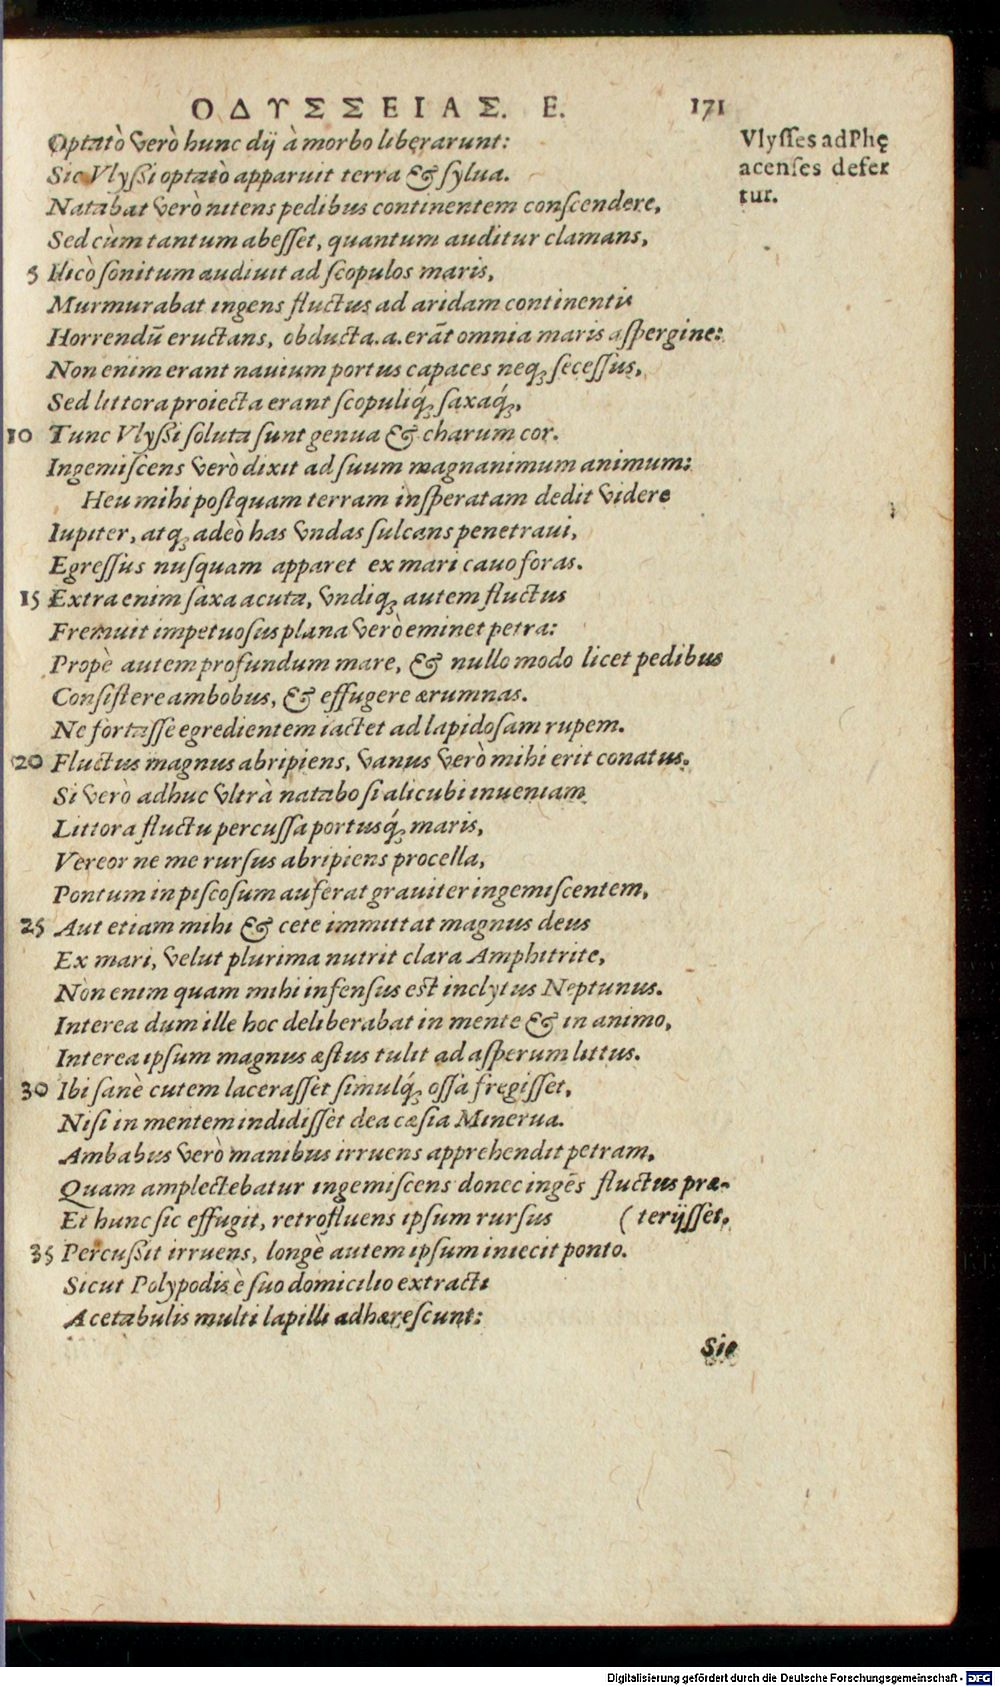 ΟΔΥΣΣΕΙΑΣ. Ε. 171
Optatò verò hunc dij à morbo liberarunt:
Sic Vlyßi optatò apparuit terra & sylua.
Natabat verò nitens pedibus continentem conscendere,
Sed cùm tantum abesset, quantum auditur clamans,
5 Hicò sonitum audiuit ad scopulos maris,
Murmurabat ingens fluctus ad aridam continentis
Horrendū eructans, obducta.a.erāt omnia maris aspergine:
Non enim erant nauium portus capaces neq; secessus,
Sed littora proiecta erant scopuliq́; saxaq́;,
10 Tunc Vlyßi soluta sunt genua & charum cor.
Ingemiscens verò dixit ad suum magnanimum animum:
Heu mihi postquam terram insperatam dedit videre
Iupiter, atq; adeò has vndas sulcans penetraui,
Egressus nusquam apparet ex mari cauo foras.
15 Extra enim saxa acuta, vndiq; autem fluctus
Fremuit impetuosus plana verò eminet petra:
Propè autem profundum mare, & nullo modo licet pedibus
Consistere ambobus, & effugere ærumnas.
Ne fortasse egredientem iactet ad lapidosam rupem.
20 Fluctus magnus abripiens, vanus verò mihi erit conatus.
Si verò adhuc vltrà natabo si alicubi inueniam
Littora fluctu percussa portusq́; maris,
Vereor ne me rursus abripiens procella,
Pontum in piscosum auferat grauiter ingemiscentem,
25 Aut etiam mihi & cete immittat magnus deus
Ex mari, velut plurima nutrit clara Amphitrite,
Nòn enim quam mihi infensus est inclytus Neptunus.
Interea dum ille hoc deliberabat in mente & in animo,
Interea ipsum magnus æstus tulit ad asperum littus.
30 Ibi sanè cutem lacerasset simulq́; ossa fregisset,
Nisi in mentem indidisset dea cæsia Minerua.
Ambabus verò manibus irruens apprehendit petram,
Quam amplectebatur ingemiscens donec ingēs fluctus præ-
Et hunc sic effugit, retrofluens ipsum rursus (terijsset,
35 Percußit irruens, longè autem ipsum iniecit ponto.
Sicut Polypodis è suo domicilio extracti
Acetabulis multi lapilli adhærescunt:
Sic
Vlysses ad Phę
acenses defer
tur.
Digitalisierung gefördert durch die Deutsche Forschungsgemeinschaft - DFG